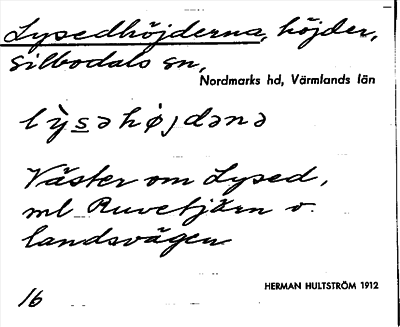 Lysedhöjderna, höjder,
Silbodals sn,
Nordmarks hd, Värmlands län
lỳsəhøjdənə
Väster om Lysed,
ml Ruvetjärn o.
landsvägen
HERMAN HULTSTRÖM 1912
16